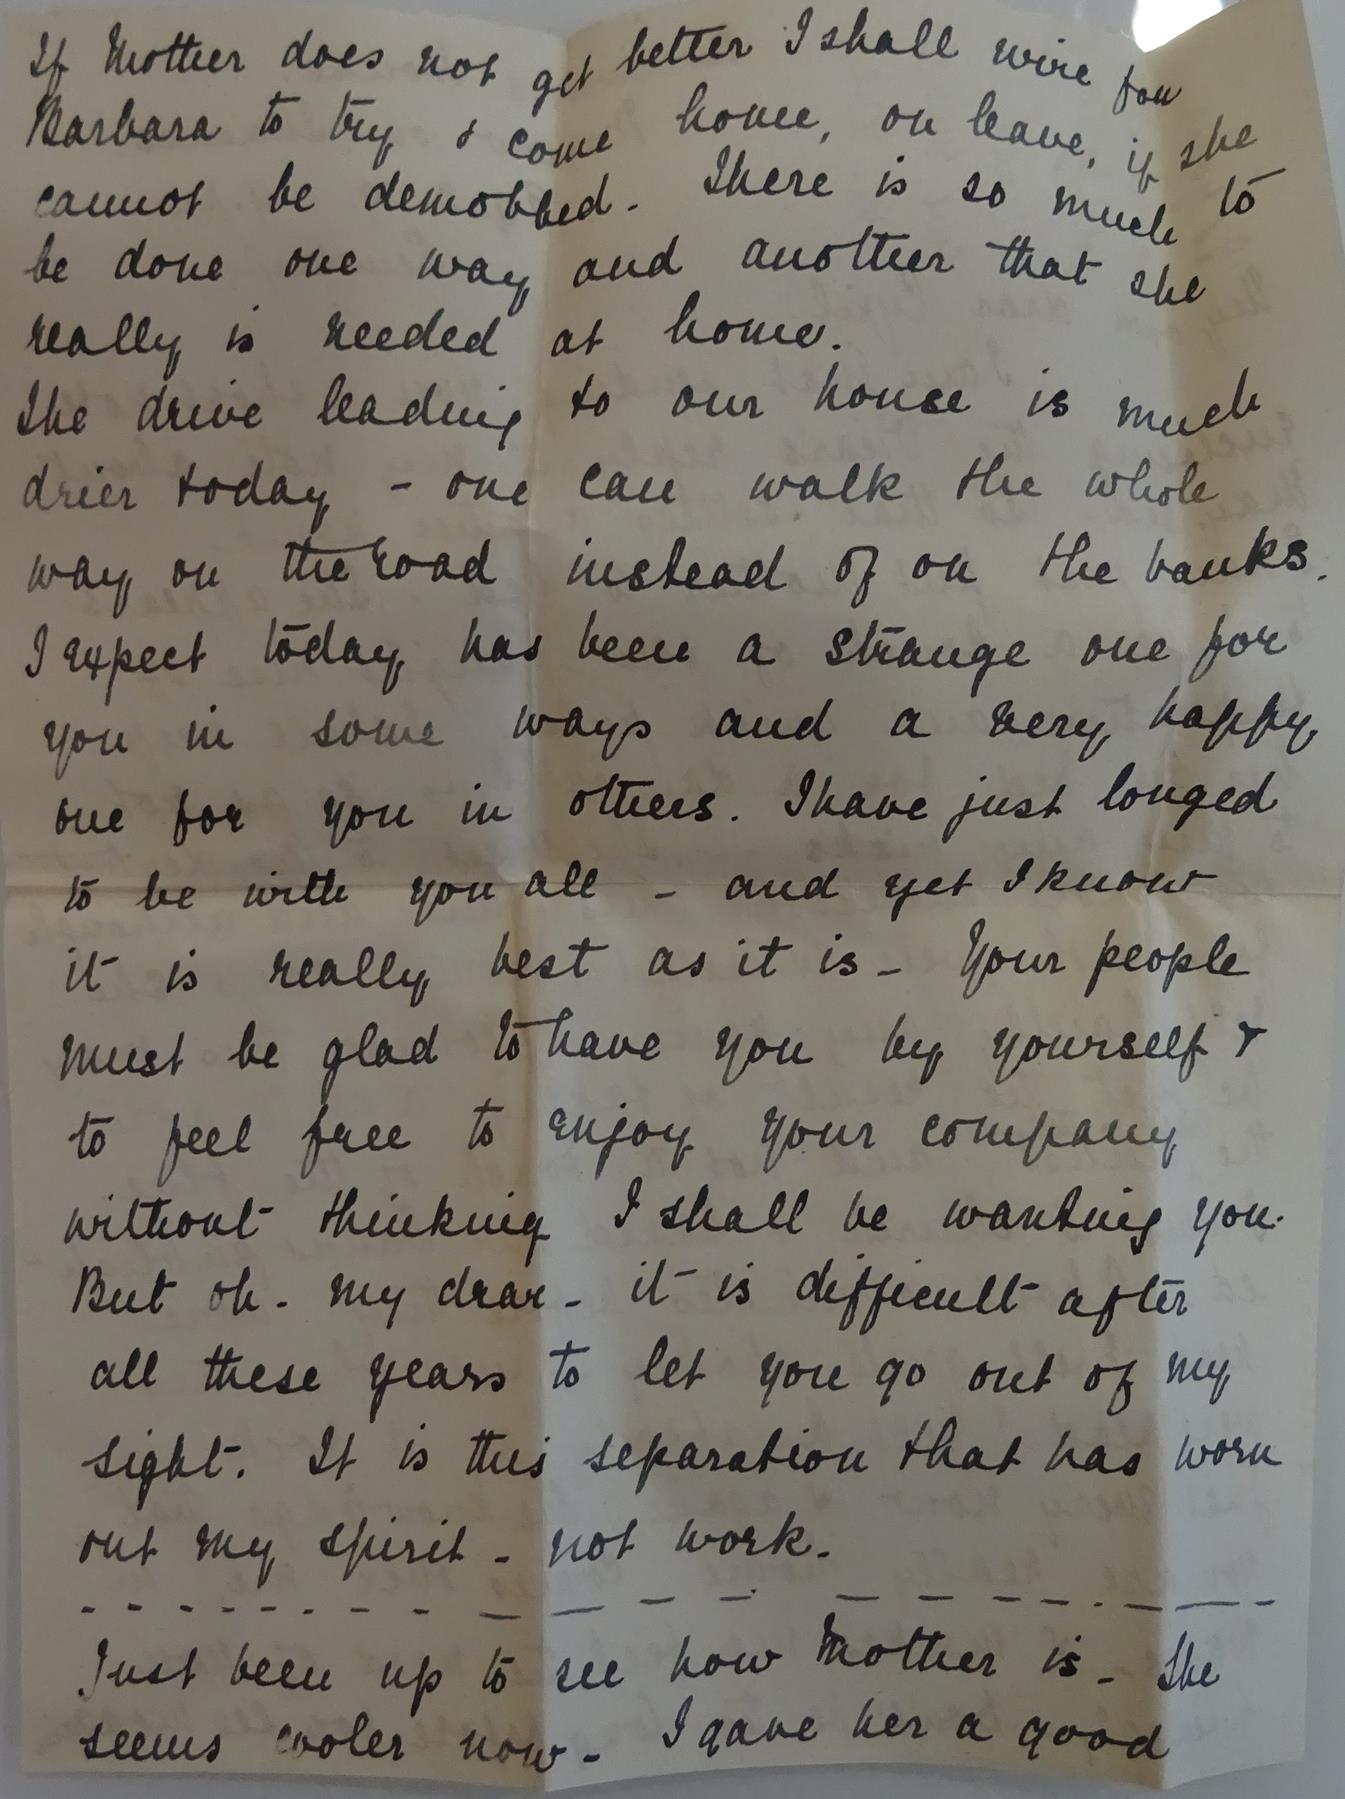 If Mother does not get better I shall wire for
Barbara to try & come home, on leave, if she
cannot be demobbed. There is so much to
be done one way and another that she
really is needed at home.
The drive leading to our house is much
drier today - one can walk the whole
way on the road instead of on the banks.
I expect today has been a strange one for
you in some ways and a very happy
one for you in others. I have just longed
to be with you all - and yet I know
it is really best as it is - Your people
must be glad to have you by yourself &
to feel free to enjoy your company
without thinking I shall be wanting you.
But oh - my dear - it is difficult after
all these years to let you go out of my
sight. It is this separation that has worn
out my spirit - not work.
Just been up to see how Mother is - She
seems cooler now - I gave her a good